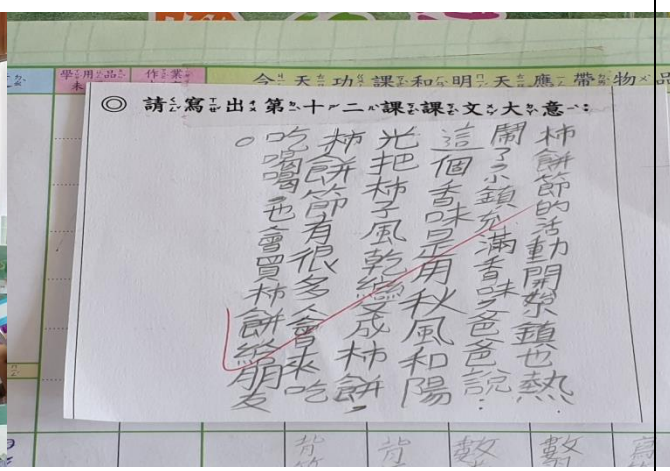 學用品 作業 今天功課和明天應帶物品
未
◎ 請寫出第十二課課文大意：
柿餅節的活動開祭鎮也熱
鬧了小鎮充滿香味，爸爸說：
這個香味是用秋風和陽
光把柿子風乾變成柿餅，
柿餅節有很多人會來吃
吃喝喝也會買柿餅給朋友
。
背 背 數 數